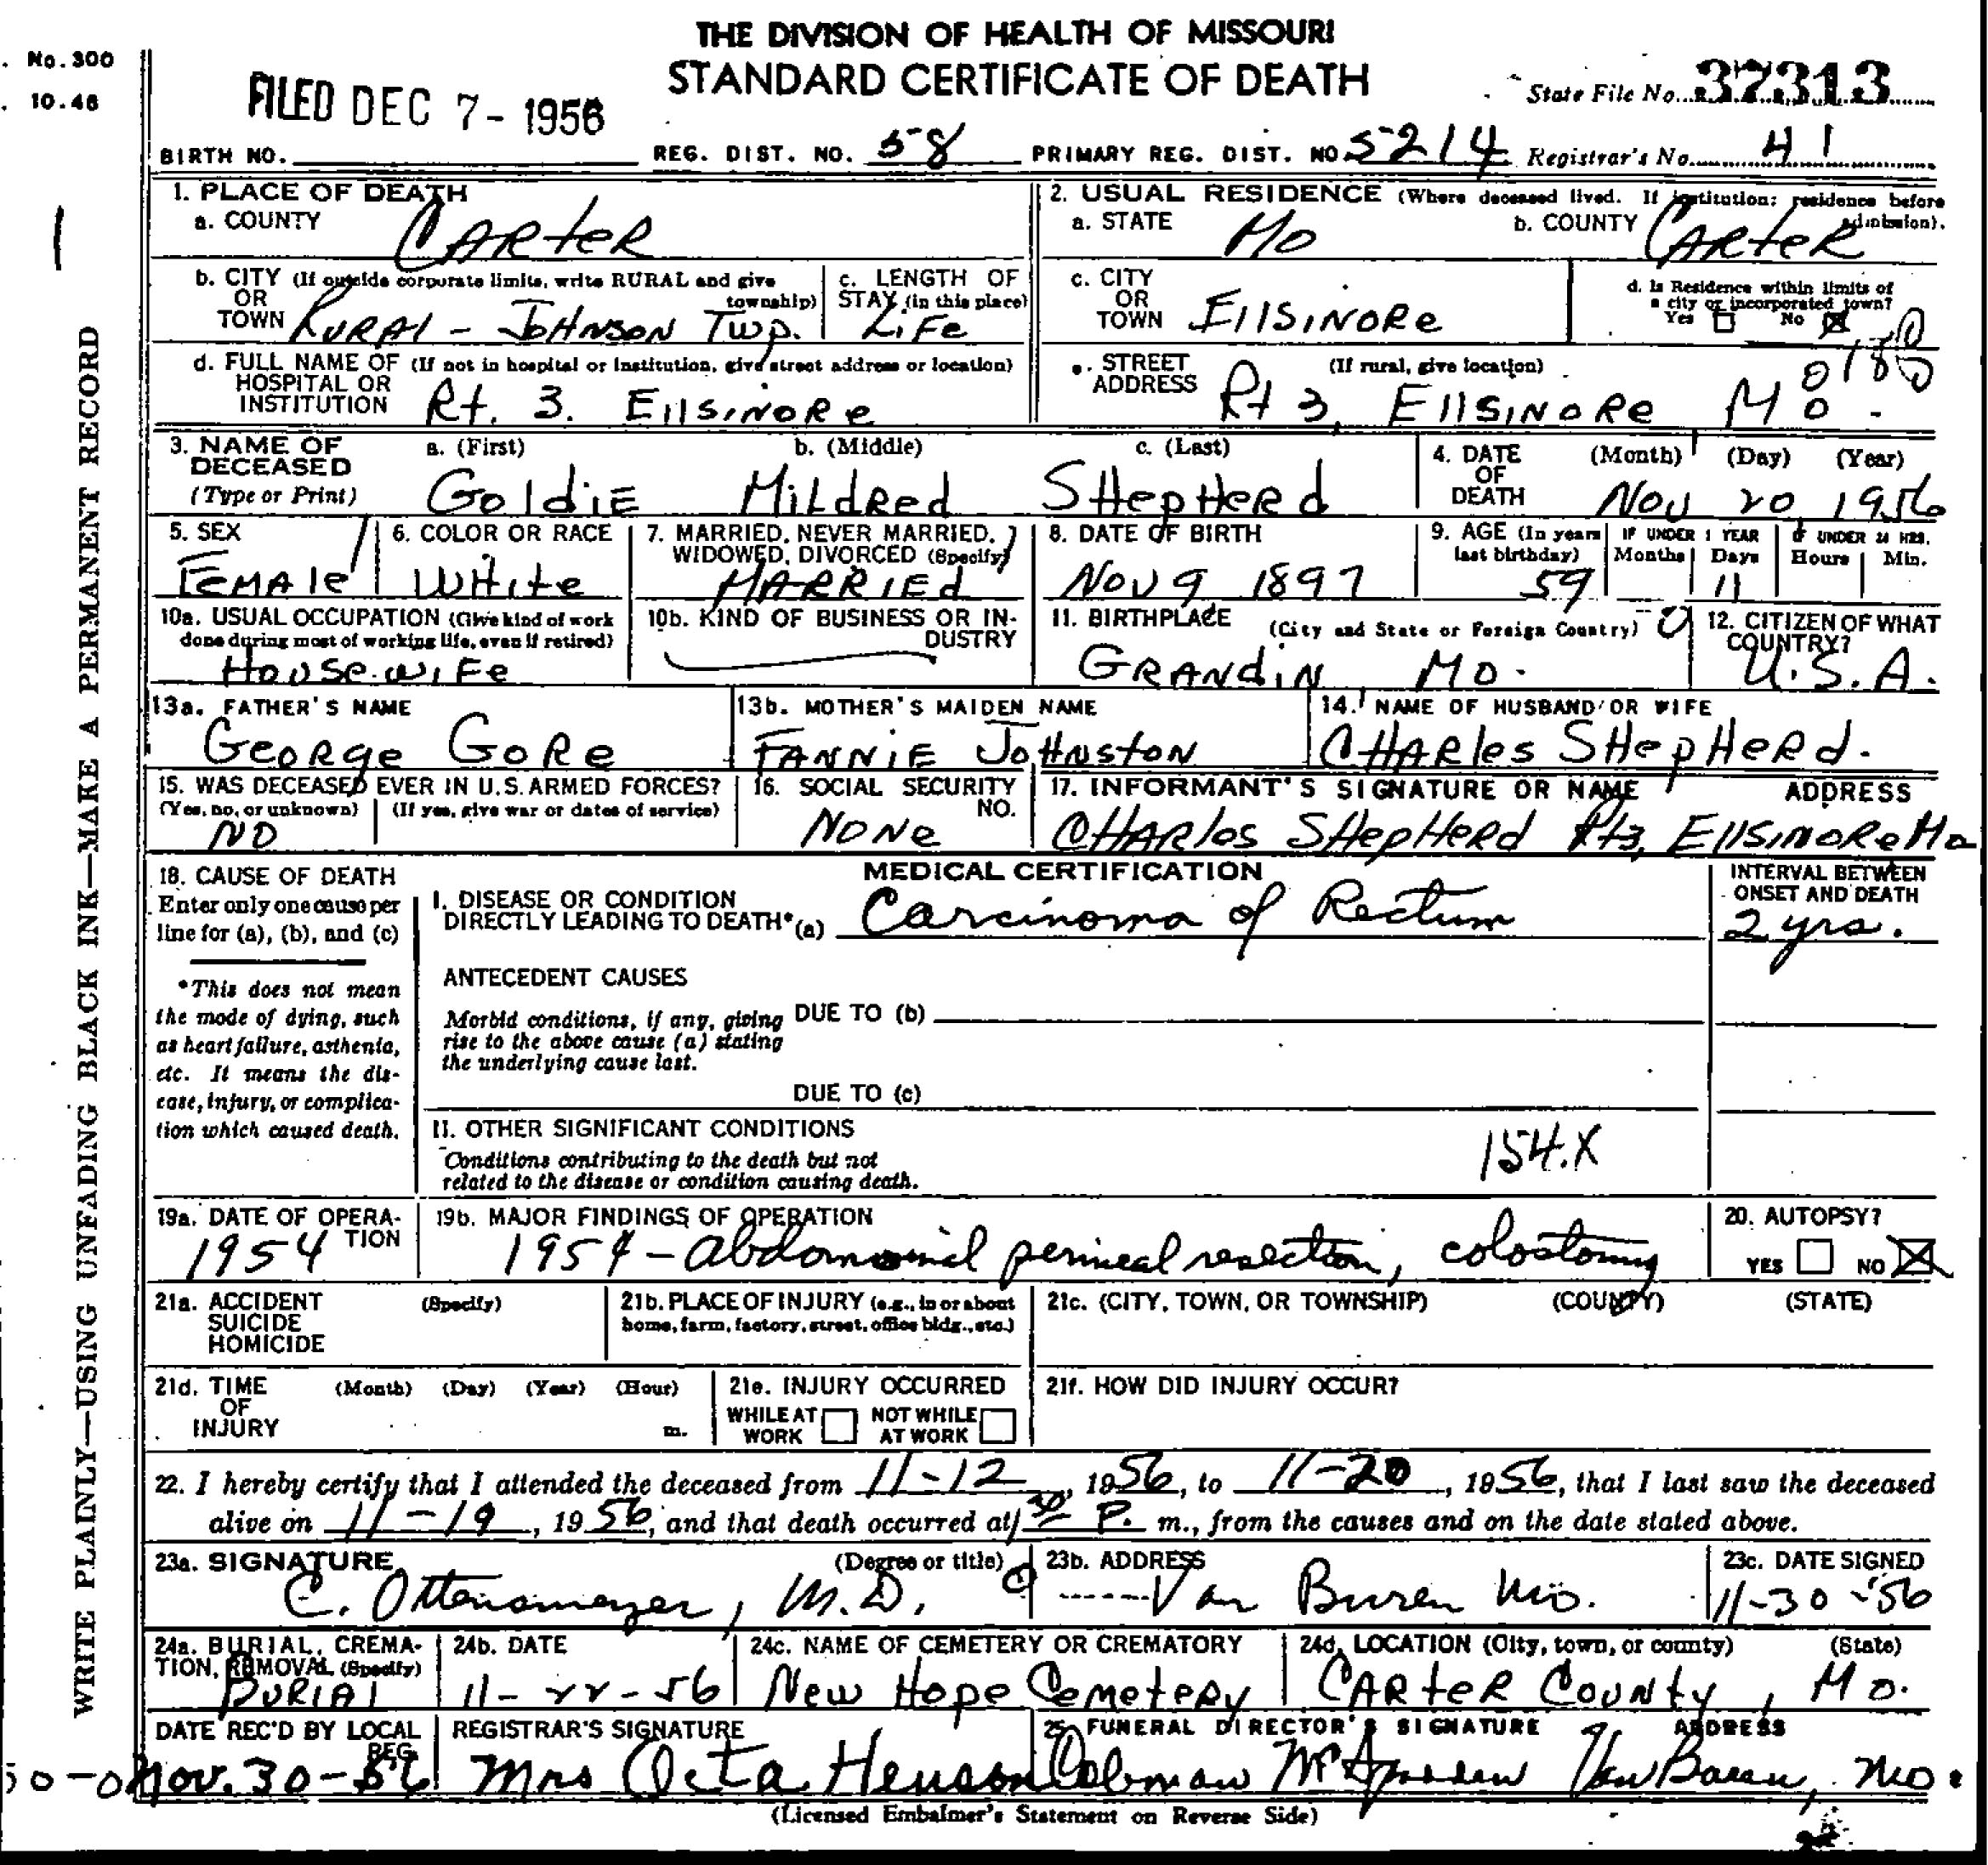 THE DIVISION OF HEALTH OF MISSOURI
STANDARD CERTIFICATE OF DEATH
No.300
10.48
FILED DEC 7 - 1956
State File No. 37313
BIRTH NO. REG. DIST. NO. 58 PRIMARY REG. DIST. NO. 5214 Registrar's No. 41
WRITE PLAINLY—USING UNFADING BLACK INK—MAKE A PERMANENT RECORD
1. PLACE OF DEATH
a. COUNTY CARteR
2. USUAL RESIDENCE (Where deceased lived. If institution: residence before admission).
a. STATE MO b. COUNTY CARteR
b. CITY (If outside corporate limits, write RURAL and give township) OR TOWN RURAl - JOHNSON Twp.
c. LENGTH OF STAY (in this place) LiFe
c. CITY OR TOWN EllSiNORe
d. Is Residence within limits of a city or incorporated town? Yes No X
d. FULL NAME OF (If not in hospital or institution, give street address or location) HOSPITAL OR INSTITUTION Rt. 3. EllSiNORe
e. STREET ADDRESS (If rural, give location) Rt 3, EllSiNORe MO.
3. NAME OF DECEASED (Type or Print)
a. (First) b. (Middle) c. (Last)
GoldiE MildRed SHepHeRd
4. DATE OF DEATH (Month) (Day) (Year)
Nov 20, 1956
5. SEX FEMAle
6. COLOR OR RACE WHite
7. MARRIED, NEVER MARRIED, WIDOWED, DIVORCED (Specify) MARRIEd
8. DATE OF BIRTH Nov 9 1897
9. AGE (In years last birthday) 59
IF UNDER 1 YEAR Months Days 11
IF UNDER 24 HRS. Hours Min.
10a. USUAL OCCUPATION (Give kind of work done during most of working life, even if retired) HousewiFe
10b. KIND OF BUSINESS OR INDUSTRY
11. BIRTHPLACE (City and State or Foreign Country) GRANdiN MO.
12. CITIZEN OF WHAT COUNTRY? U.S.A.
13a. FATHER'S NAME GeoRge GoRe
13b. MOTHER'S MAIDEN NAME FANNiE JoHNstoN
14. NAME OF HUSBAND OR WIFE CHARles SHepHeRd.
15. WAS DECEASED EVER IN U.S. ARMED FORCES?
(Yes, no, or unknown) (If yes, give war or dates of service)
NO
16. SOCIAL SECURITY NO. NONe
17. INFORMANT'S SIGNATURE OR NAME ADDRESS
CHARles SHepHeRd Rt3, EllSiNORe Mo
MEDICAL CERTIFICATION
18. CAUSE OF DEATH
Enter only one cause per line for (a), (b), and (c)
*This does not mean the mode of dying, such as heart failure, asthenia, etc. It means the disease, injury, or complication which caused death.
I. DISEASE OR CONDITION DIRECTLY LEADING TO DEATH* (a) Carcinoma of Rectum
INTERVAL BETWEEN ONSET AND DEATH
2 yrs.
ANTECEDENT CAUSES
Morbid conditions, if any, giving rise to the above cause (a) stating the underlying cause last.
DUE TO (b)
DUE TO (c)
II. OTHER SIGNIFICANT CONDITIONS
Conditions contributing to the death but not related to the disease or condition causing death.
154.X
19a. DATE OF OPERATION 1954
19b. MAJOR FINDINGS OF OPERATION
1954 - Abdominal perineal resection, colostomy
20. AUTOPSY? YES NO X
21a. ACCIDENT SUICIDE HOMICIDE (Specify)
21b. PLACE OF INJURY (e.g., in or about home, farm, factory, street, office bldg., etc.)
21c. (CITY, TOWN, OR TOWNSHIP) (COUNTY) (STATE)
21d. TIME OF INJURY (Month) (Day) (Year) (Hour) m.
21e. INJURY OCCURRED WHILE AT WORK NOT WHILE AT WORK
21f. HOW DID INJURY OCCUR?
22. I hereby certify that I attended the deceased from 11-12, 1956, to 11-20, 1956, that I last saw the deceased
alive on 11-19, 1956, and that death occurred at 1 30 P. m., from the causes and on the date stated above.
23a. SIGNATURE (Degree or title)
C. Ottensmeyer, M.D.
23b. ADDRESS Van Buren Mo.
23c. DATE SIGNED 11-30-56
24a. BURIAL, CREMATION, REMOVAL (Specify) BURIAl
24b. DATE 11-22-56
24c. NAME OF CEMETERY OR CREMATORY New Hope CemeteRy
24d. LOCATION (City, town, or county) (State) CARteR CouNty, MO.
DATE REC'D BY LOCAL REG. Nov. 30-56
REGISTRAR'S SIGNATURE Mrs Octa Henson
25. FUNERAL DIRECTOR'S SIGNATURE ADDRESS
Van Buren, Mo.
(Licensed Embalmer's Statement on Reverse Side)